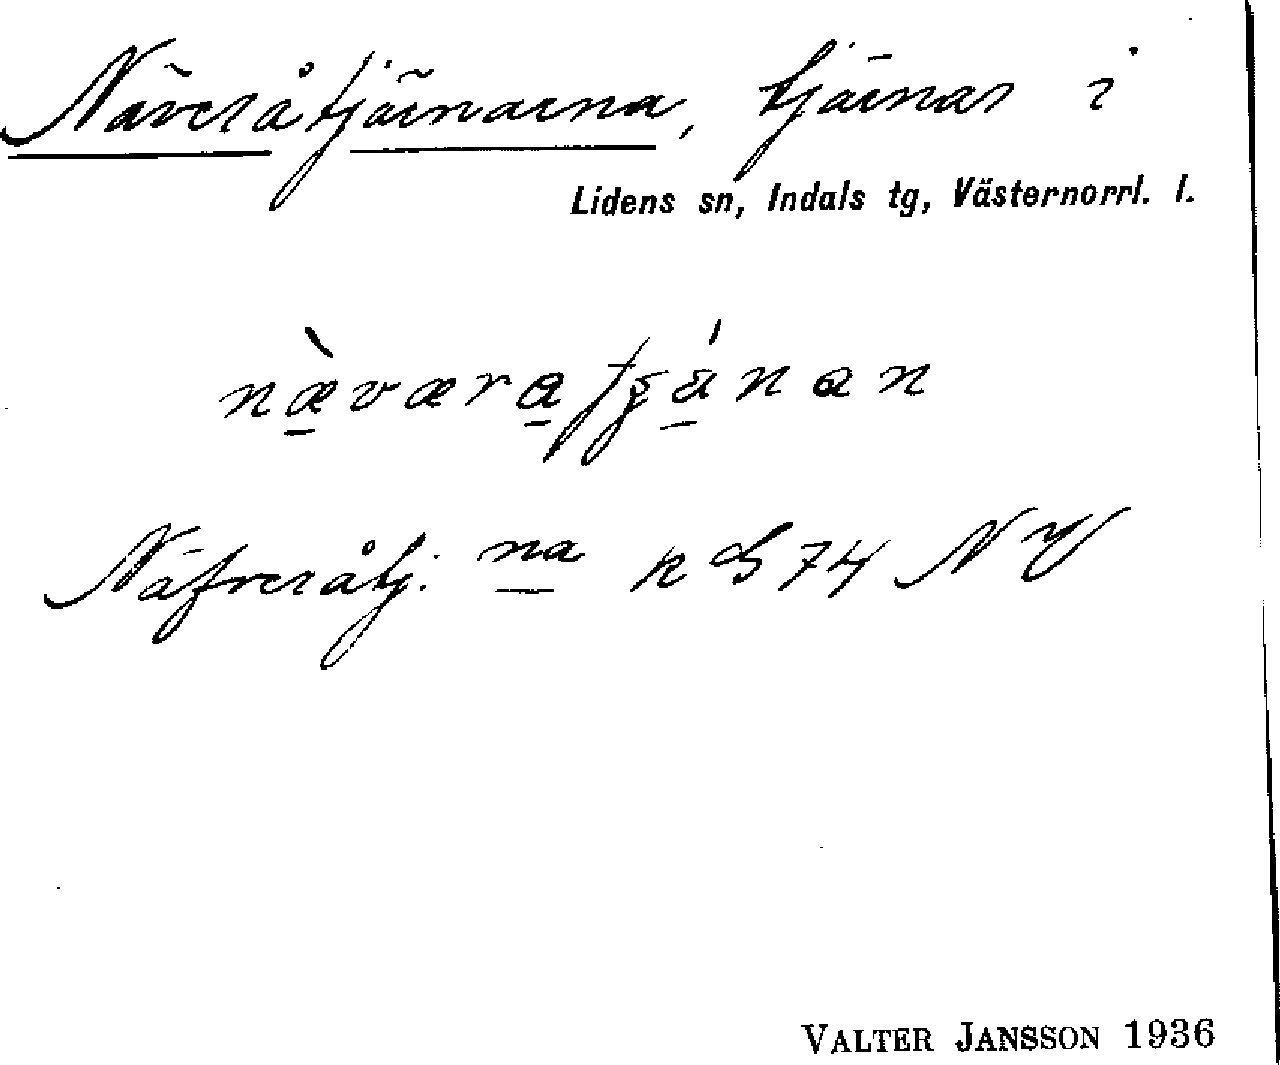 Näveråtjärnarna, tjärnar i
Lidens sn, Indals tg, Västernorrl. l.
Näfveråtj. na k G 74 NV
VALTER JANSSON 1936